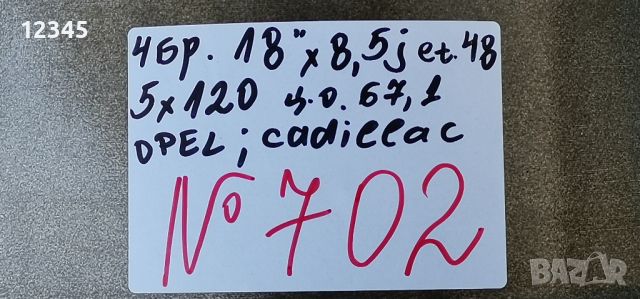 12345
4бр. 18" x 8,5j et. 48
5x120 ц.о. 67,1
OPEL; cadillac
№ 702
BAZAR